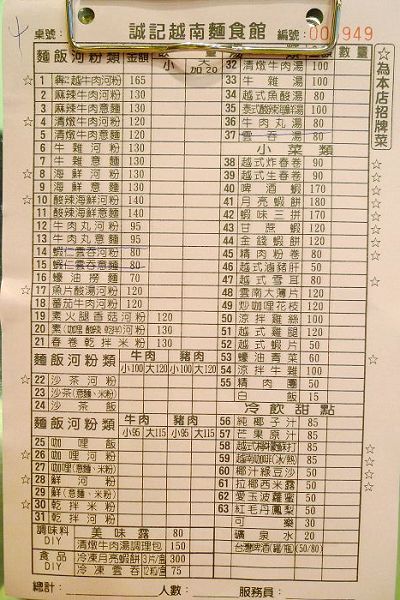 桌號：
誠記越南麵食館
編號：
00 949
麵飯河粉類 金額 小 大加20
☆ 1 犇記越牛肉河粉 165
2 麻辣牛肉河粉 120
3 麻辣牛肉意麵 120
4 清燉牛肉河粉 120
5 清燉牛肉意麵 120
6 牛雜河粉 130
7 牛雜意麵 130
☆ 8 海鮮河粉 130
9 海鮮意麵 130
☆ 10 酸辣海鮮河粉 140
11 酸辣海鮮意麵 140
12 牛肉丸河粉 95
13 牛肉丸意麵 95
14 蝦仁雲吞河粉 80
15 蝦仁雲吞意麵 80
16 蠔油撈麵 70
☆ 17 魚片酸湯河粉 120
18 蕃茄牛肉河粉 120
19 素火腿香菇河粉 120
20 素(咖哩 酸辣 乾拌)河粉 130
21 春卷乾拌米粉 130
麵飯河粉類 牛肉 小100 大120 豬肉 小100 大120
☆ 22 沙茶河粉
23 沙茶(意麵、米粉)
24 沙茶飯
麵飯河粉類 牛肉 小95 大115 豬肉 小95 大115
25 咖哩飯
☆ 26 咖哩河粉
27 咖哩(意麵、米粉)
☆ 28 鮮河粉
29 鮮(意麵、米粉)
☆ 30 乾拌米粉
31 乾拌河粉
調味料 DIY 美味露 80
清燉牛肉湯調理包 150
食品 DIY 冷凍月亮蝦餅 3片/盒 300
冷凍雲吞 12粒/盒 75
數量
☆為本店招牌菜
32 清燉牛肉湯 100
33 牛雜湯 100
34 越式魚酸湯 80
35 泰式酸辣海鮮湯 100
36 牛肉丸湯 80
37 雲吞湯 80
小菜類
38 越式炸春卷 90
39 越式生春卷 90
40 啤酒蝦 170
☆ 41 月亮蝦餅 180
42 蝦味三拼 170
☆ 43 甘蔗蝦 120
44 金錢蝦餅 100
45 精肉粉卷 80
46 越式滷豬肝 50
☆ 47 越式雪耳 80
48 雲南大薄片 120
49 炒咖哩花枝 120
50 涼拌雞絲 100
51 越式雞腿 120
52 越式蝦片 50
☆ 53 蠔油青菜 60
54 涼拌牛雜 100
55 精肉團 50
白飯 15
冷飲甜點
56 純椰子汁 85
57 芒果原汁 85
☆ 58 越式檸檬蘇打 85
☆ 59 越南咖啡(冰/熱) 85
☆ 60 椰汁綠豆沙 50
☆ 61 拉椰西米露 50
62 愛玉波蘿蜜 50
63 紅毛丹鳳梨 50
可樂 30
礦泉水 20
台灣啤酒(罐/瓶) (50/80)
總計： 人數： 服務員：